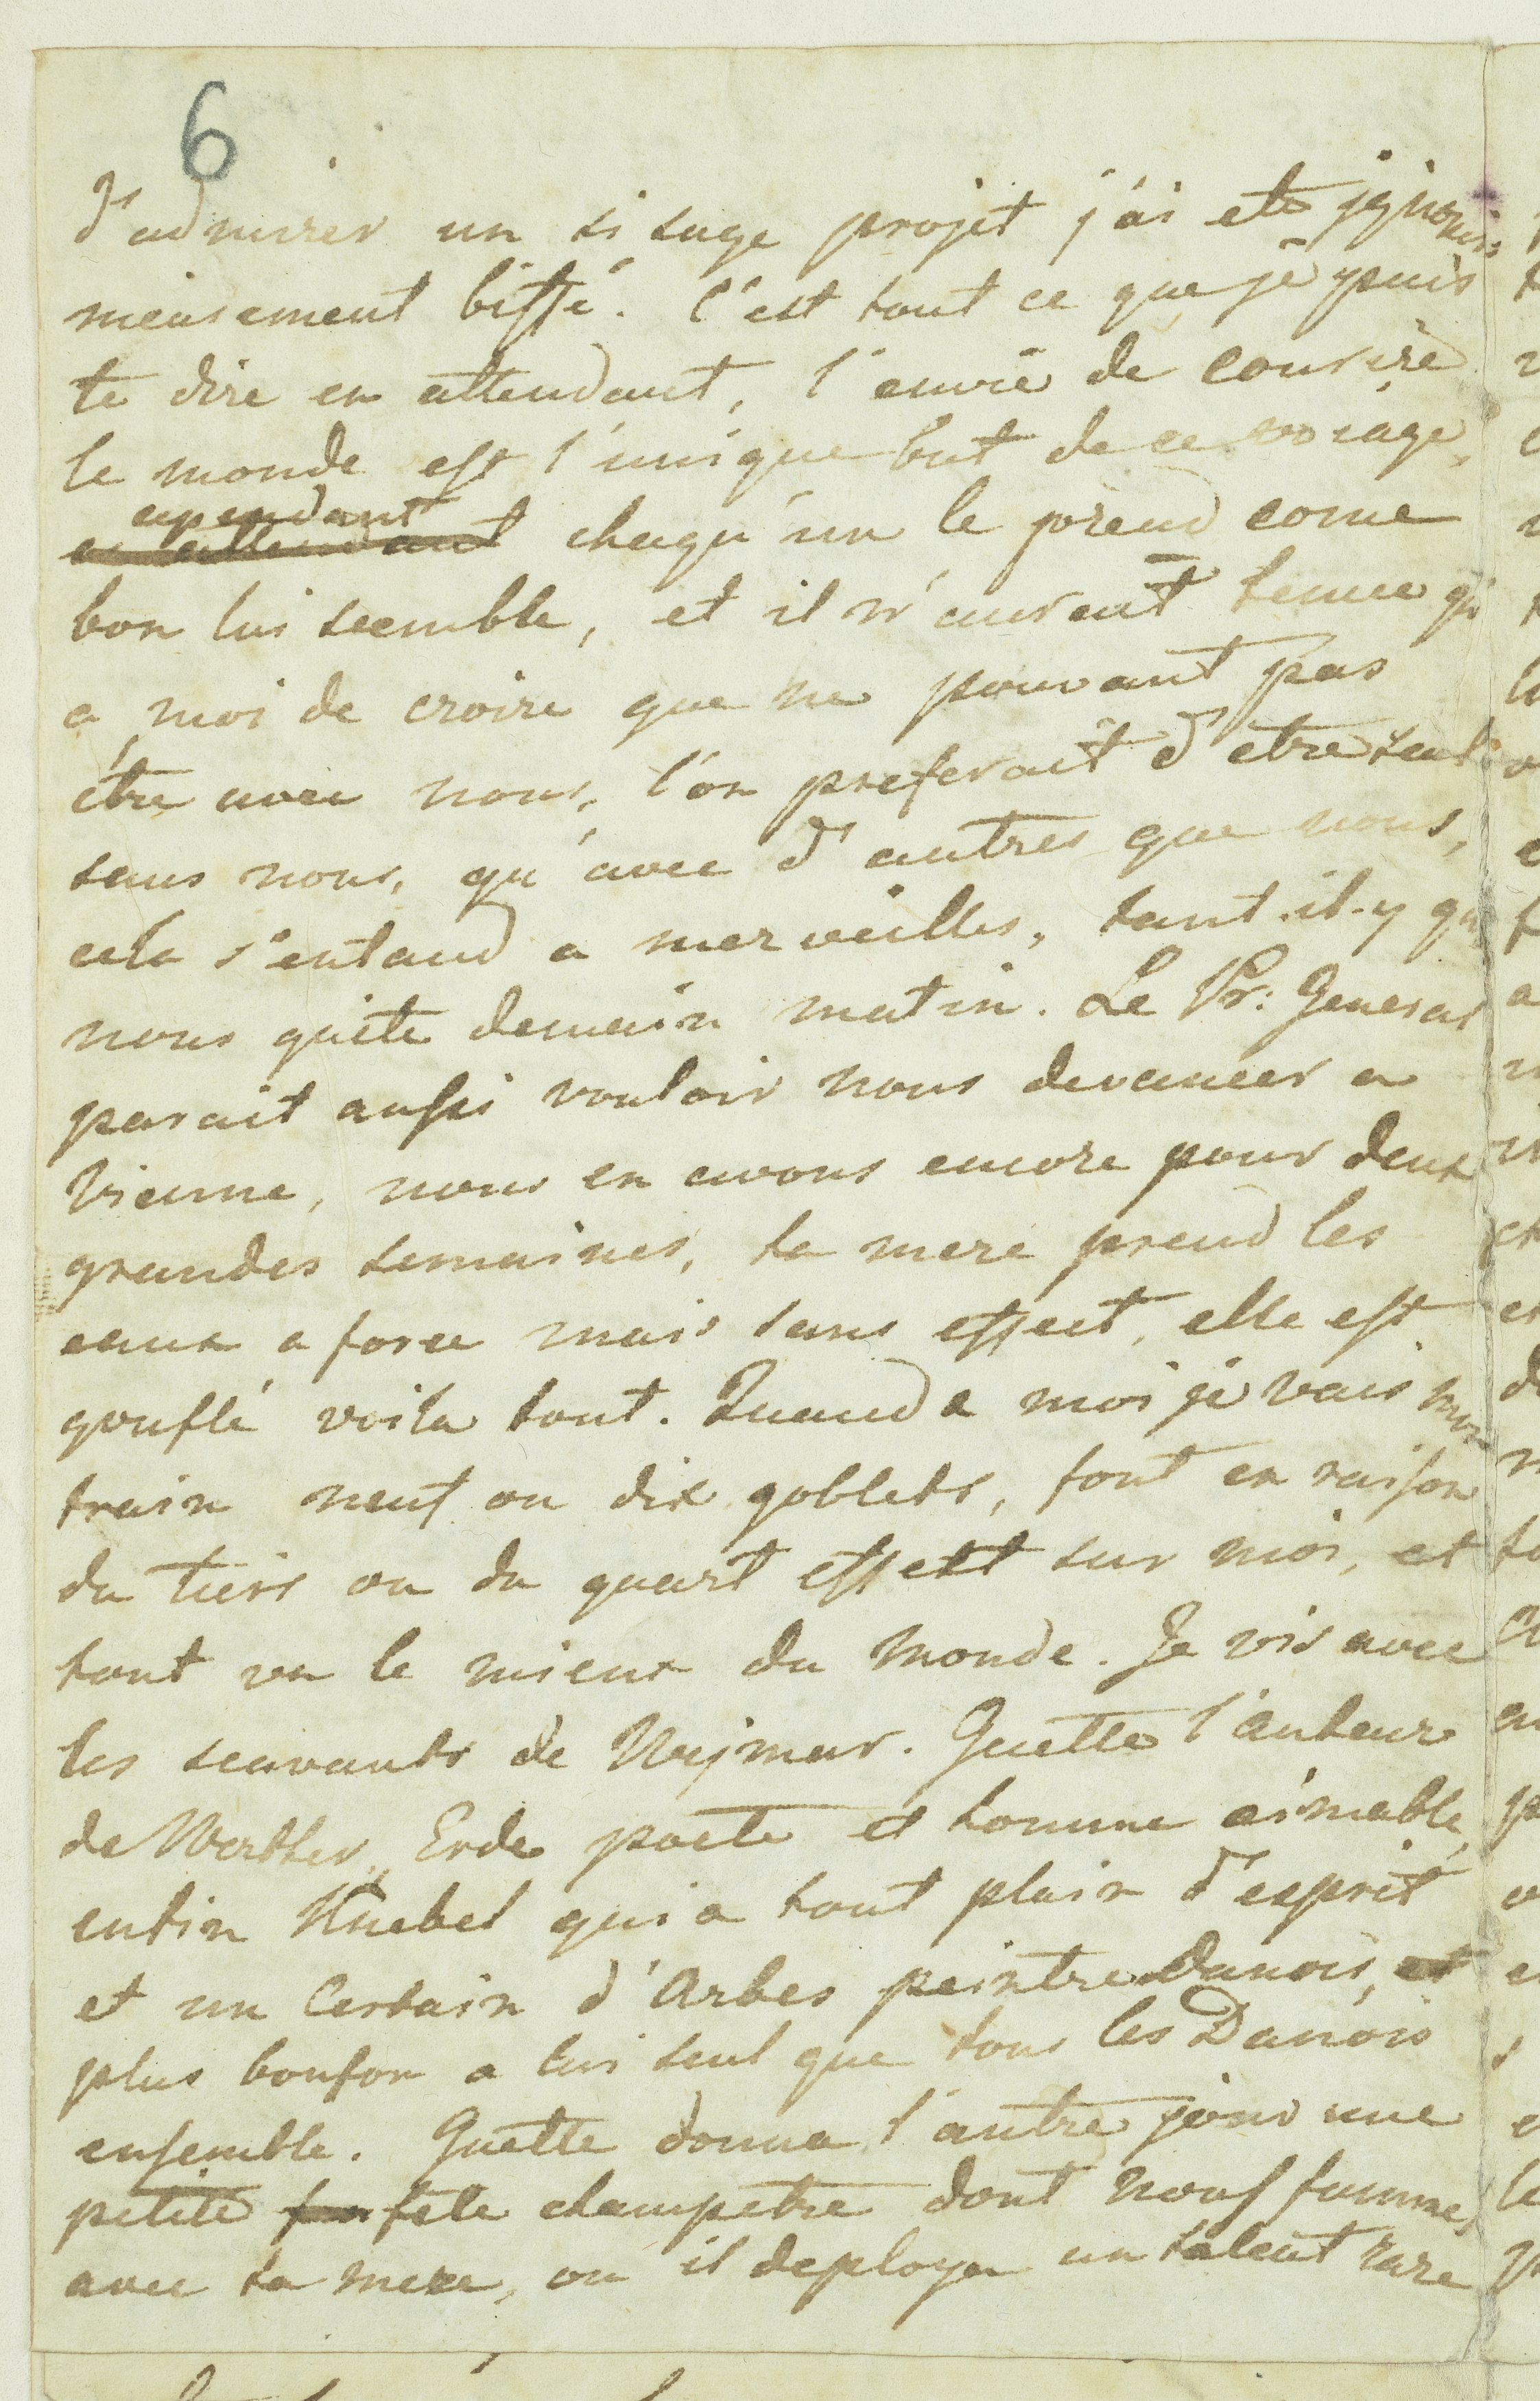 6
d'admirer un si sage projet j'ai eté jgnomi
nieusement biffé. C'est tout ce que je puis
te dire en attendant, l'envie de courire
le monde est l'unique but de ce voiage,
cependant
en attendant chaqu'un le prend come
bon lui seemble, et il n'auroit tenue qu'
a moi de croire que ne pouvant pas
être avec nous, l'on preferait d'etre seul
sans nous, qu'avec d'autres que nous,
cela s'entand a merveilles, tant-il-y qu'
nous quite demain matin. Le Pr: General
parait aussi vouloir nous devancer a
Vienne, nous en avons encore pour deux
grandes semaines, ta mere prend les
eaux a force mais sans effect, elle est
gonflé voila tout. Quand a moi je vais mon
train neuf ou dix goblets, font en raison
du tiers ou du quart effect sur moi, et
tout va le mieux du monde. Je vis avec
les scavants de Wejmar. Guette l'auteur
de Werther, Erde poete et homme aimable,
enfin Knebel qui a tout plain d'esprit
et un Certain d'Arbes peintre Danois, et
plus boufon a lui seul que tous les Danois
ensemble. Guette donna l'autre jour une
petite fete champetre dont nous fummes
avec ta mere, ou il deploya un talent rare